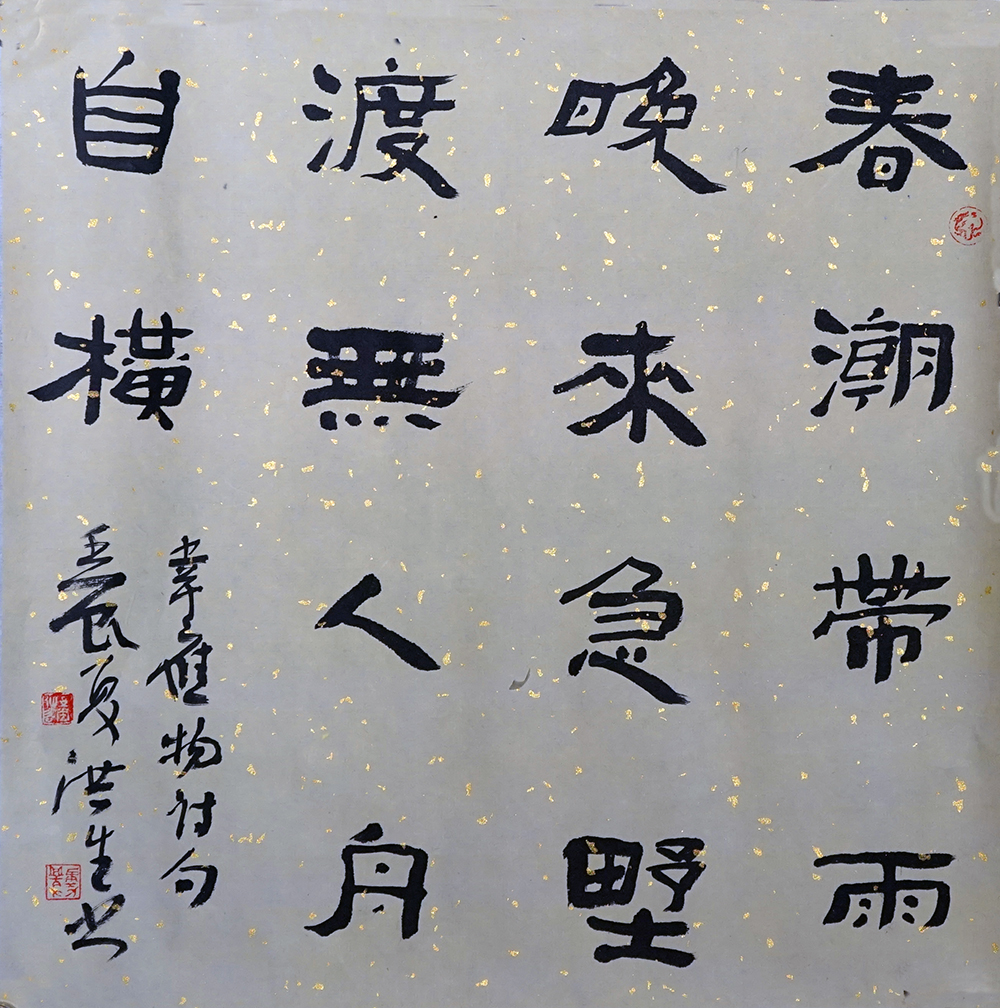 春潮帶雨
晚來急野
渡無人舟
自橫
韋應物诗句
壬辰夏洪生书